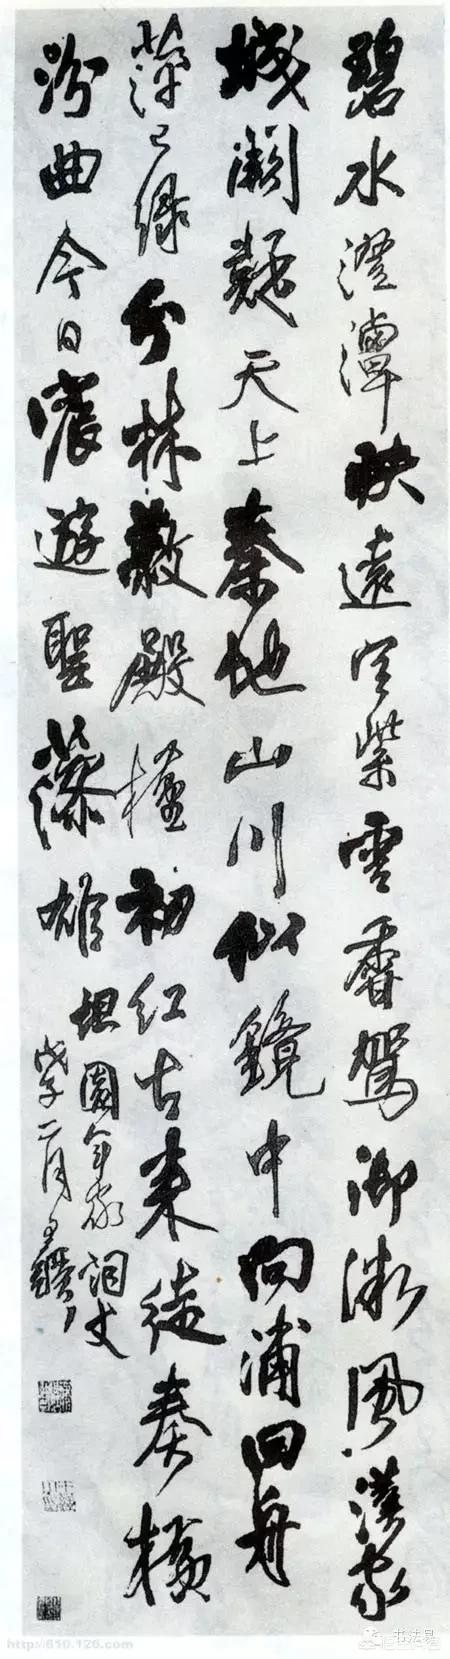 碧水澄潭映遠空紫雲香駕御微風漢家
城闕疑天上秦地山川似鏡中向浦回舟
萍已綠分林蔽殿槿初紅古來徒奏橫
汾曲今日宸遊聖藻雄
坦園年家詞丈
戊子二月王鐸
http://610.126.com
书法易